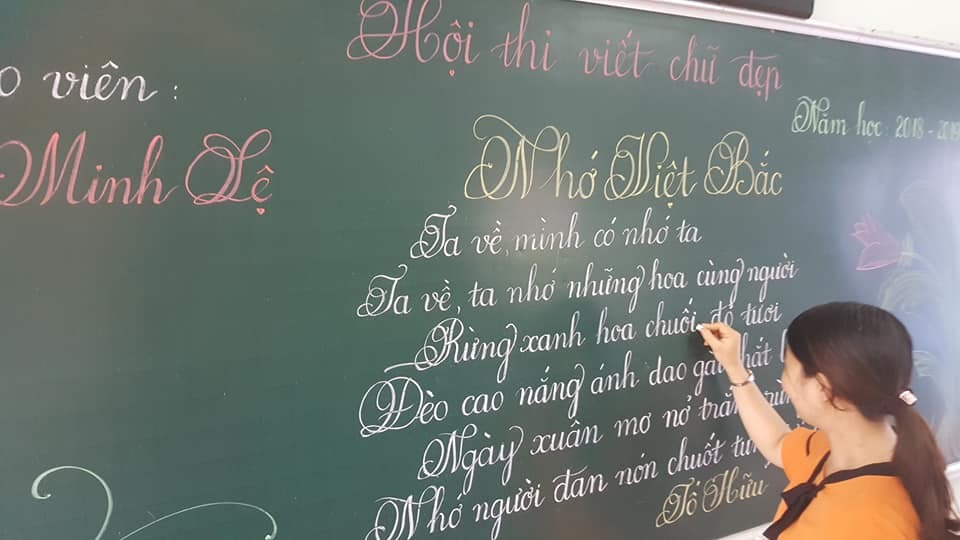 Hội thi viết chữ đẹp
o viên :
Năm học : 2018 - 2019
Minh Lệ
Nhớ Việt Bắc
Ta về, mình có nhớ ta
Ta về, ta nhớ những hoa cùng người
Rừng xanh hoa chuối đỏ tươi
Đèo cao nắng ánh dao
Ngày xuân mơ nở
Nhớ người đan nón chuốt
Tố Hữu